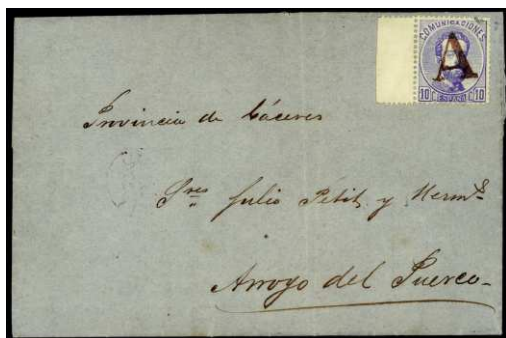 COMUNICACIONES
A
10 ESPAÑA 10
Provincia de Cáceres
Sres Julio Petit y Herms
Arroyo del Puerco